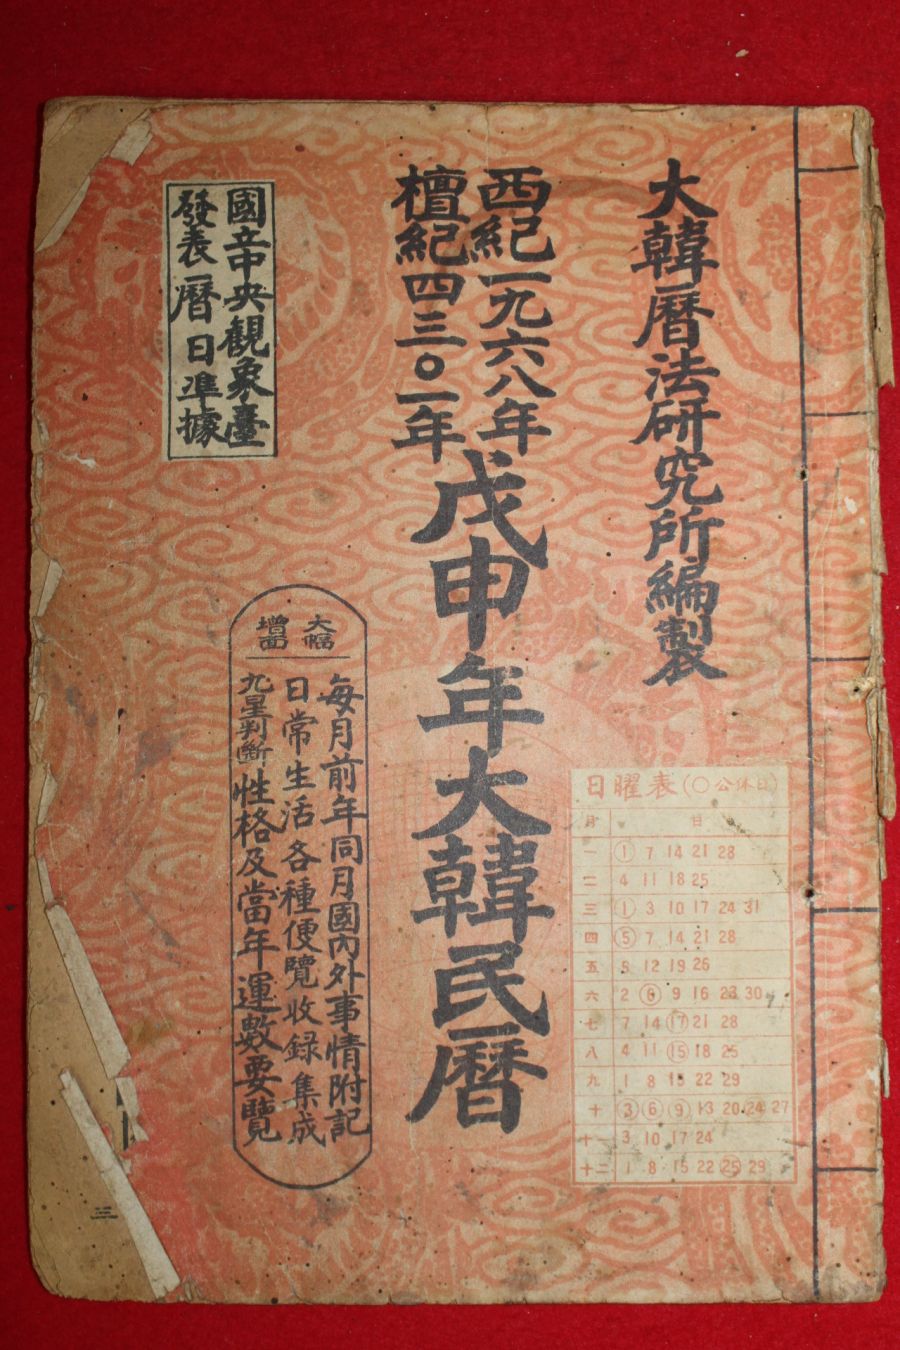 大韓曆法研究所編製
西紀一九六八年
檀紀四三〇一年
戊申年大韓民曆
國立中央觀象臺
發表曆日準據
大幅
增面
每月前年同月國內外事情附記
日常生活各種便覽收錄集成
九星判斷性格及當年運數要覽
日曜表(〇公休日)
月 日
一 ① 7 14 21 28
二 4 11 18 25
三 ① 3 10 17 24 31
四 ⑤ 7 14 21 28
五 5 12 19 26
六 2 ⑥ 9 16 23 30
七 7 14 ⑰ 21 28
八 4 11 ⑮ 18 25
九 1 8 15 22 29
十 ③ ⑥ ⑨ 13 20 24 27
十一 3 10 17 24
十二 1 8 15 22 ㉕ 29
三